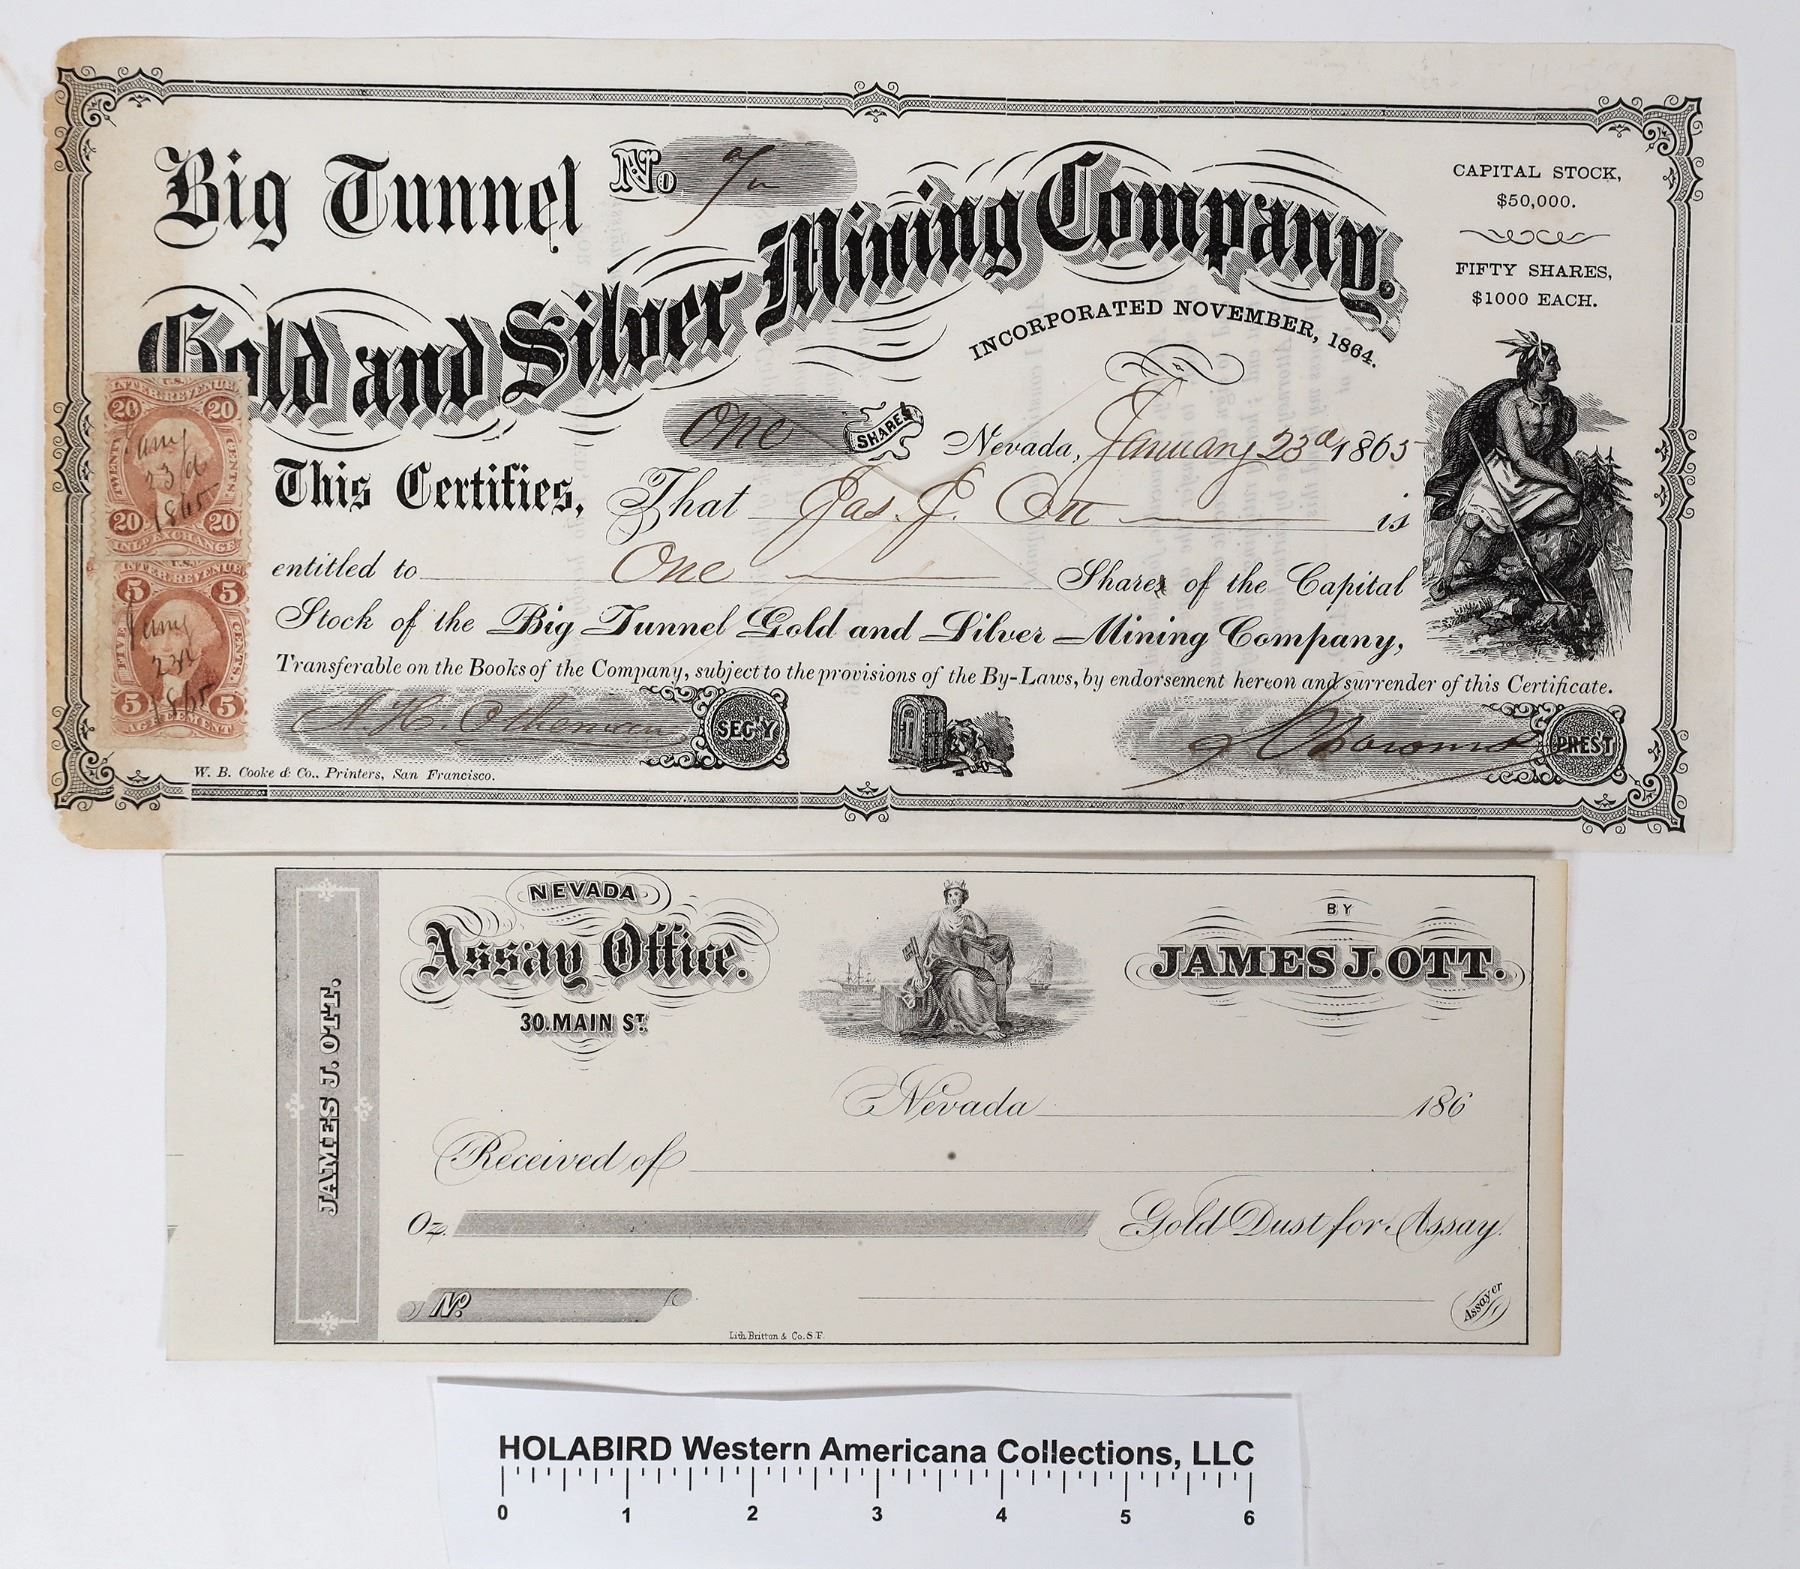 Big Tunnel No.
Gold and Silver Mining Company.
INCORPORATED NOVEMBER, 1864.
CAPITAL STOCK,
$50,000.
FIFTY SHARES,
$1000 EACH.
One SHARES Nevada, January 23d 1865
This Certifies, That Jas. J. Ott is
entitled to One Shares of the Capital
Stock of the Big Tunnel Gold and Silver Mining Company,
Transferable on the Books of the Company, subject to the provisions of the By-Laws, by endorsement hereon and surrender of this Certificate.
SEC'Y
PREST
W. B. Cooke & Co., Printers, San Francisco.
U.S.
INTER. REVENUE
20 20
TWENTY CENTS
Jany
23d
1865
20 20
INLD EXCHANGE
U.S.
INTER. REVENUE
5 5
FIVE CENTS
Jany
23d
1865
5 5
AGREEMENT
JAMES J. OTT.
NEVADA
Assay Office.
30. MAIN ST.
BY
JAMES J. OTT.
Nevada 186
Received of
Oz. Gold Dust for Assay.
No.
Assayer
Lith. Britton & Co. S.F.
HOLABIRD Western Americana Collections, LLC
0 1 2 3 4 5 6